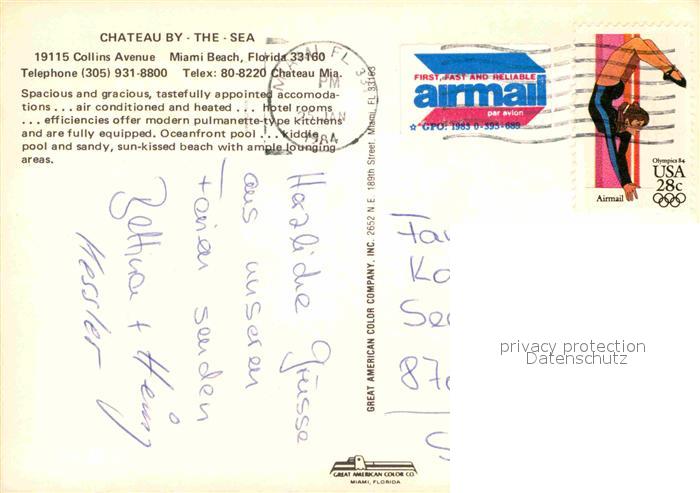 CHATEAU BY - THE - SEA
19115 Collins Avenue Miami Beach, Florida 33160
Telephone (305) 931-8800 Telex: 80-8220 Chateau Mia.
Spacious and gracious, tastefully appointed accomoda-
tions . . . air conditioned and heated . . . hotel rooms
. . . efficiencies offer modern pulmanette-type kitchens
and are fully equipped. Oceanfront pool . . . kiddie
pool and sandy, sun-kissed beach with ample lounging
areas.
MIAMI, FL 331
PM
JAN
1984
FIRST, FAST AND RELIABLE
airmail
par avion
☆ GPO: 1983 0-395-689
Olympics 84
USA
28c
Airmail
Herzliche Grüsse
aus unseren
Ferien senden
Bettina + Heinz
Kessler
GREAT AMERICAN COLOR COMPANY, INC. 2652 N.E. 189th Street, Miami, FL 33163
Fa
Ko
Se
87
privacy protection
Datenschutz
GREAT AMERICAN COLOR CO.
MIAMI, FLORIDA